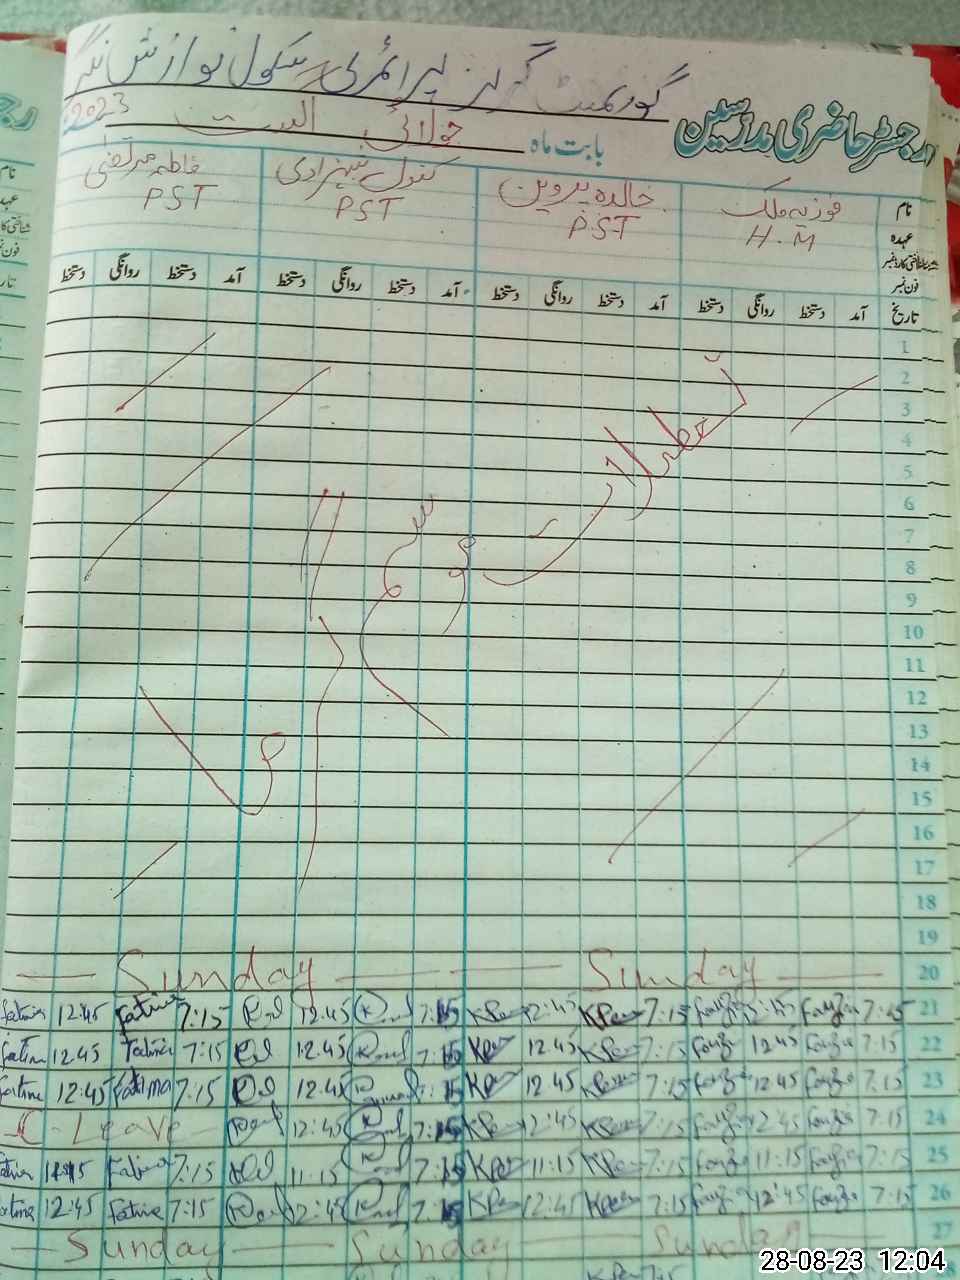 گورنمنٹ گرلز پرائمری سکول نوازش نگر
رجسٹر حاضری مدرسین
بابت ماہ جولائی اگست 2023
نام فوزیہ ملک خالدہ پروین کنول شہزادی فاطمہ مرتضیٰ
عہدہ H.M P.S.T PST PST
فون نمبر
تاریخ آمد دستخط روانگی دستخط آمد دستخط روانگی دستخط آمد دستخط روانگی دستخط آمد دستخط روانگی دستخط
1
2
3
4
5
6
7
8
9
10
11
12
13
14
15
16
17
18
19
تعطیلات موسم گرما
— Sunday — — Sunday — 20
Fatima 12:45 Fatima 7:15 12:45 7:15 KPer 12:45 KPer 7:15 Fouzia 12:45 Fouzia 7:15 21
Fatima 12:45 Fatima 7:15 12:45 7:15 KPer 12:45 KPer 7:15 Fouzia 12:45 Fouzia 7:15 22
Fatima 12:45 Fatima 7:15 12:45 7:15 KPer 12:45 KPer 7:15 Fouzia 12:45 Fouzia 7:15 23
C - Leave 12:45 7:15 KPer 12:45 KPer 7:15 Fouzia 12:45 Fouzia 7:15 24
Fatima 11:15 Fatima 7:15 11:15 7:15 KPer 11:15 KPer 7:15 Fouzia 11:15 Fouzia 7:15 25
Fatima 12:45 Fatima 7:15 12:45 7:15 KPer 12:45 KPer 7:15 Fouzia 12:45 Fouzia 7:15 26
— Sunday — Sunday — Sunday 27
28-08-23 12:04